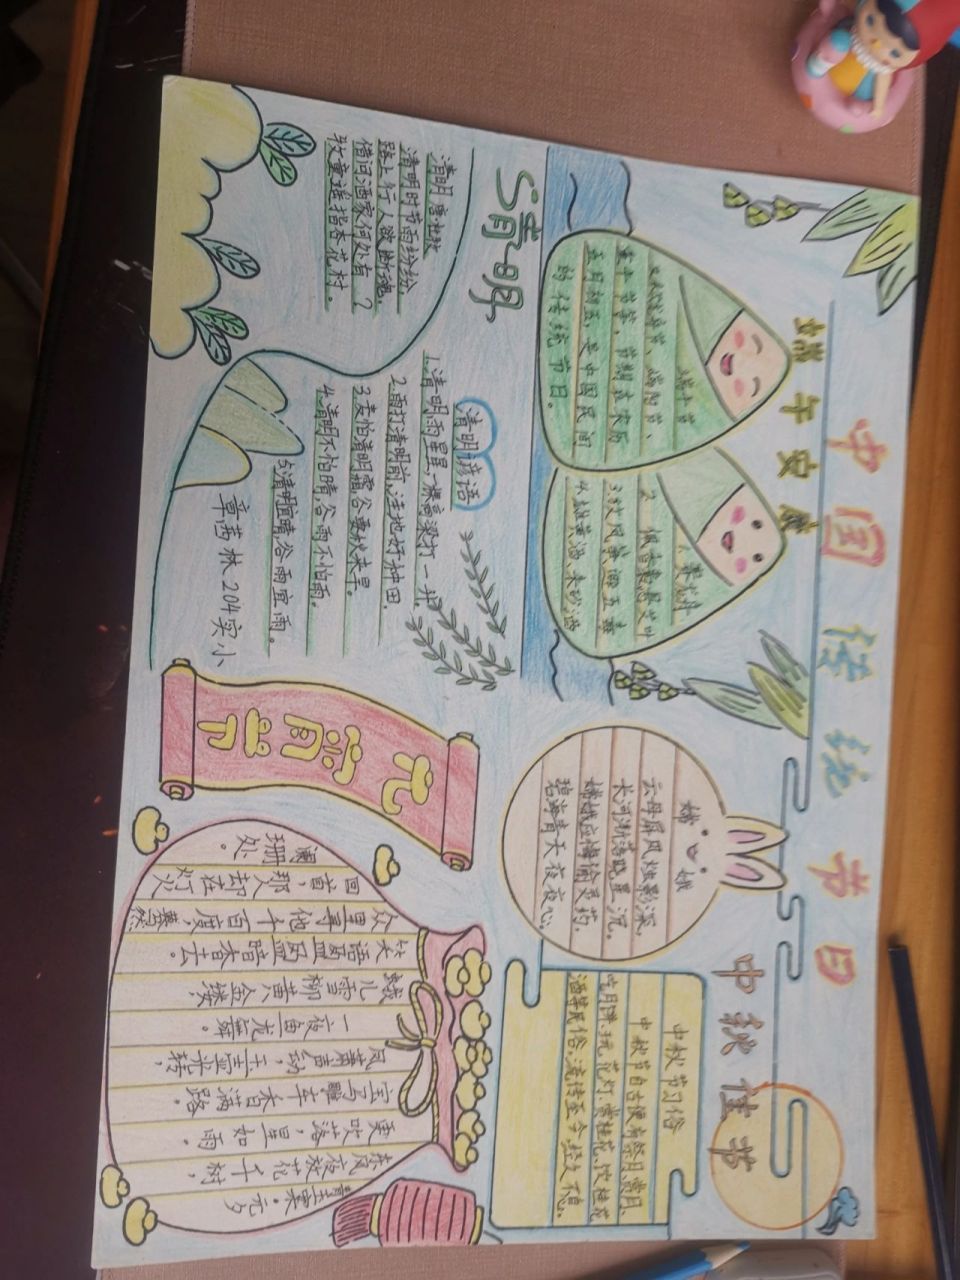 中国传统节日
端午安康
端午节
又称龙舟节、端阳节、
重午节等，节期在农历
五月初五，是中国民间
的传统节日。
1.赛龙舟
清明
清明 唐·杜牧
清明时节雨纷纷，
路上行人欲断魂。
借问酒家何处有？
牧童遥指杏花村。
清明谚语
1.清明雨星星，一棵高粱打一升。
2.雨打清明前，洼地好种田。
4.清明不怕晴，谷雨不怕雨。
5.清明宜晴，谷雨宜雨。
章茜林204实小
中秋佳节
嫦娥
云母屏风烛影深，
长河渐落晓星沉。
嫦娥应悔偷灵药，
碧海青天夜夜心。
中秋节习俗
中秋节自古便有祭月、赏月、
吃月饼、玩花灯、赏桂花、饮桂花
酒等民俗，流传至今，经久不息。
元宵节
青玉案·元夕
东风夜放花千树，
更吹落，星如雨。
宝马雕车香满路。
凤箫声动，玉壶光转，
一夜鱼龙舞。
蛾儿雪柳黄金缕，
笑语盈盈暗香去。
众里寻他千百度，蓦然
回首，那人却在，灯火
阑珊处。